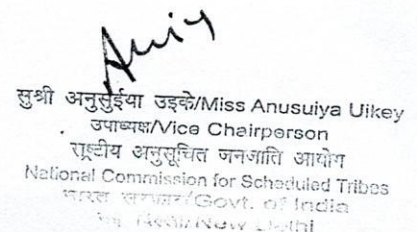 सुश्री अनुसुईया उइके/Miss Anusuiya Uikey
उपाध्यक्ष/Vice Chairperson
राष्ट्रीय अनुसूचित जनजाति आयोग
National Commission for Scheduled Tribes
भारत सरकार/Govt. of India
New Delhi